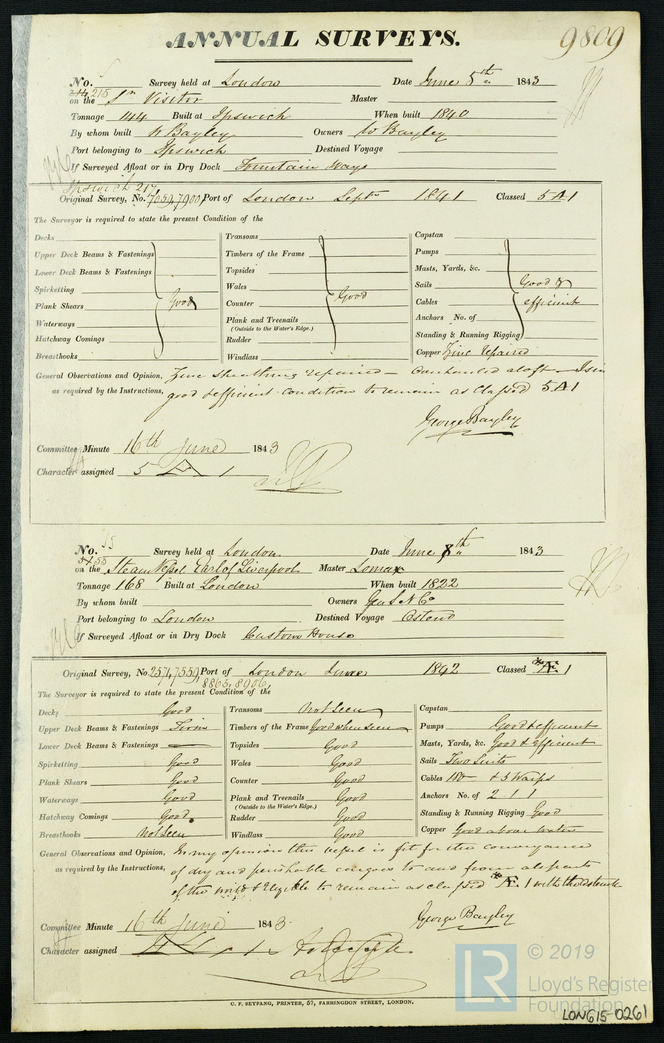 ANNUAL SURVEYS.
9809
No. 215 Survey held at London Date June 5th 1843
on the Sr Visitor Master
Tonnage 144 Built at Ipswich When built 1840
By whom built Bayley Owners Bayley
Port belonging to Ipswich Destined Voyage
If Surveyed Afloat or in Dry Dock Fountain Ways
Ipswich 217
Original Survey, No. 7059, 7900 Port of London Septr 1841 Classed 5 A 1
The Surveyor is required to state the present Condition of the
Decks Transoms Capstan
Upper Deck Beams & Fastenings Timbers of the Frame Pumps
Lower Deck Beams & Fastenings Topsides Masts, Yards, &c.
Spirketting Wales Sails Good &
Plank Shears Good Counter Good Cables efficient
Waterways Plank and Treenails Anchors No. of
(Outside to the Water's Edge.)
Hatchway Comings Rudder Standing & Running Rigging
Breasthooks Windlass Copper Zinc Repaired
General Observations and Opinion, Zinc sheathing repaired – aloft – Is in
as required by the Instructions, good & efficient condition to remain as classed 5 A 1
George Bayley
Committee Minute 16th June 1843
Character assigned 5 A 1
No. 55 Survey held at London Date June 8th 1843
on the Steam Vessel Earl of Liverpool Master Lomax
Tonnage 168 Built at London When built 1822
By whom built Owners Gen S N Co
Port belonging to London Destined Voyage Ostend
If Surveyed Afloat or in Dry Dock Custom House
Original Survey, No. 257, 7559, Port of London June 1842 Classed Æ 1
8863, 8906
The Surveyor is required to state the present Condition of the
Decks Good Transoms Not Seen Capstan
Upper Deck Beams & Fastenings Firm Timbers of the Frame Good where seen Pumps Good & efficient
Lower Deck Beams & Fastenings Topsides Good Masts, Yards, &c. Good & Efficient
Spirketting Good Wales Good Sails Two Suits
Plank Shears Good Counter Good Cables & 3 Warps
Waterways Good Plank and Treenails Good Anchors No. of 2 1 1
(Outside to the Water's Edge.)
Hatchway Comings Good Rudder Good Standing & Running Rigging Good
Breasthooks Not Seen Windlass Good Copper Good above water
General Observations and Opinion, In my opinion this vessel is fit for the conveyance
as required by the Instructions, of dry and perishable cargoes to and from all parts
of the world & Eligible to remain as classed Æ 1 with the asterisk
George Bayley
Committee Minute 16th June 1843
Character assigned 1
C. F. SEYFANG, PRINTER, 57, FARRINGDON STREET, LONDON.
LR © 2019
Lloyd's Register
Foundation
LON615-0261